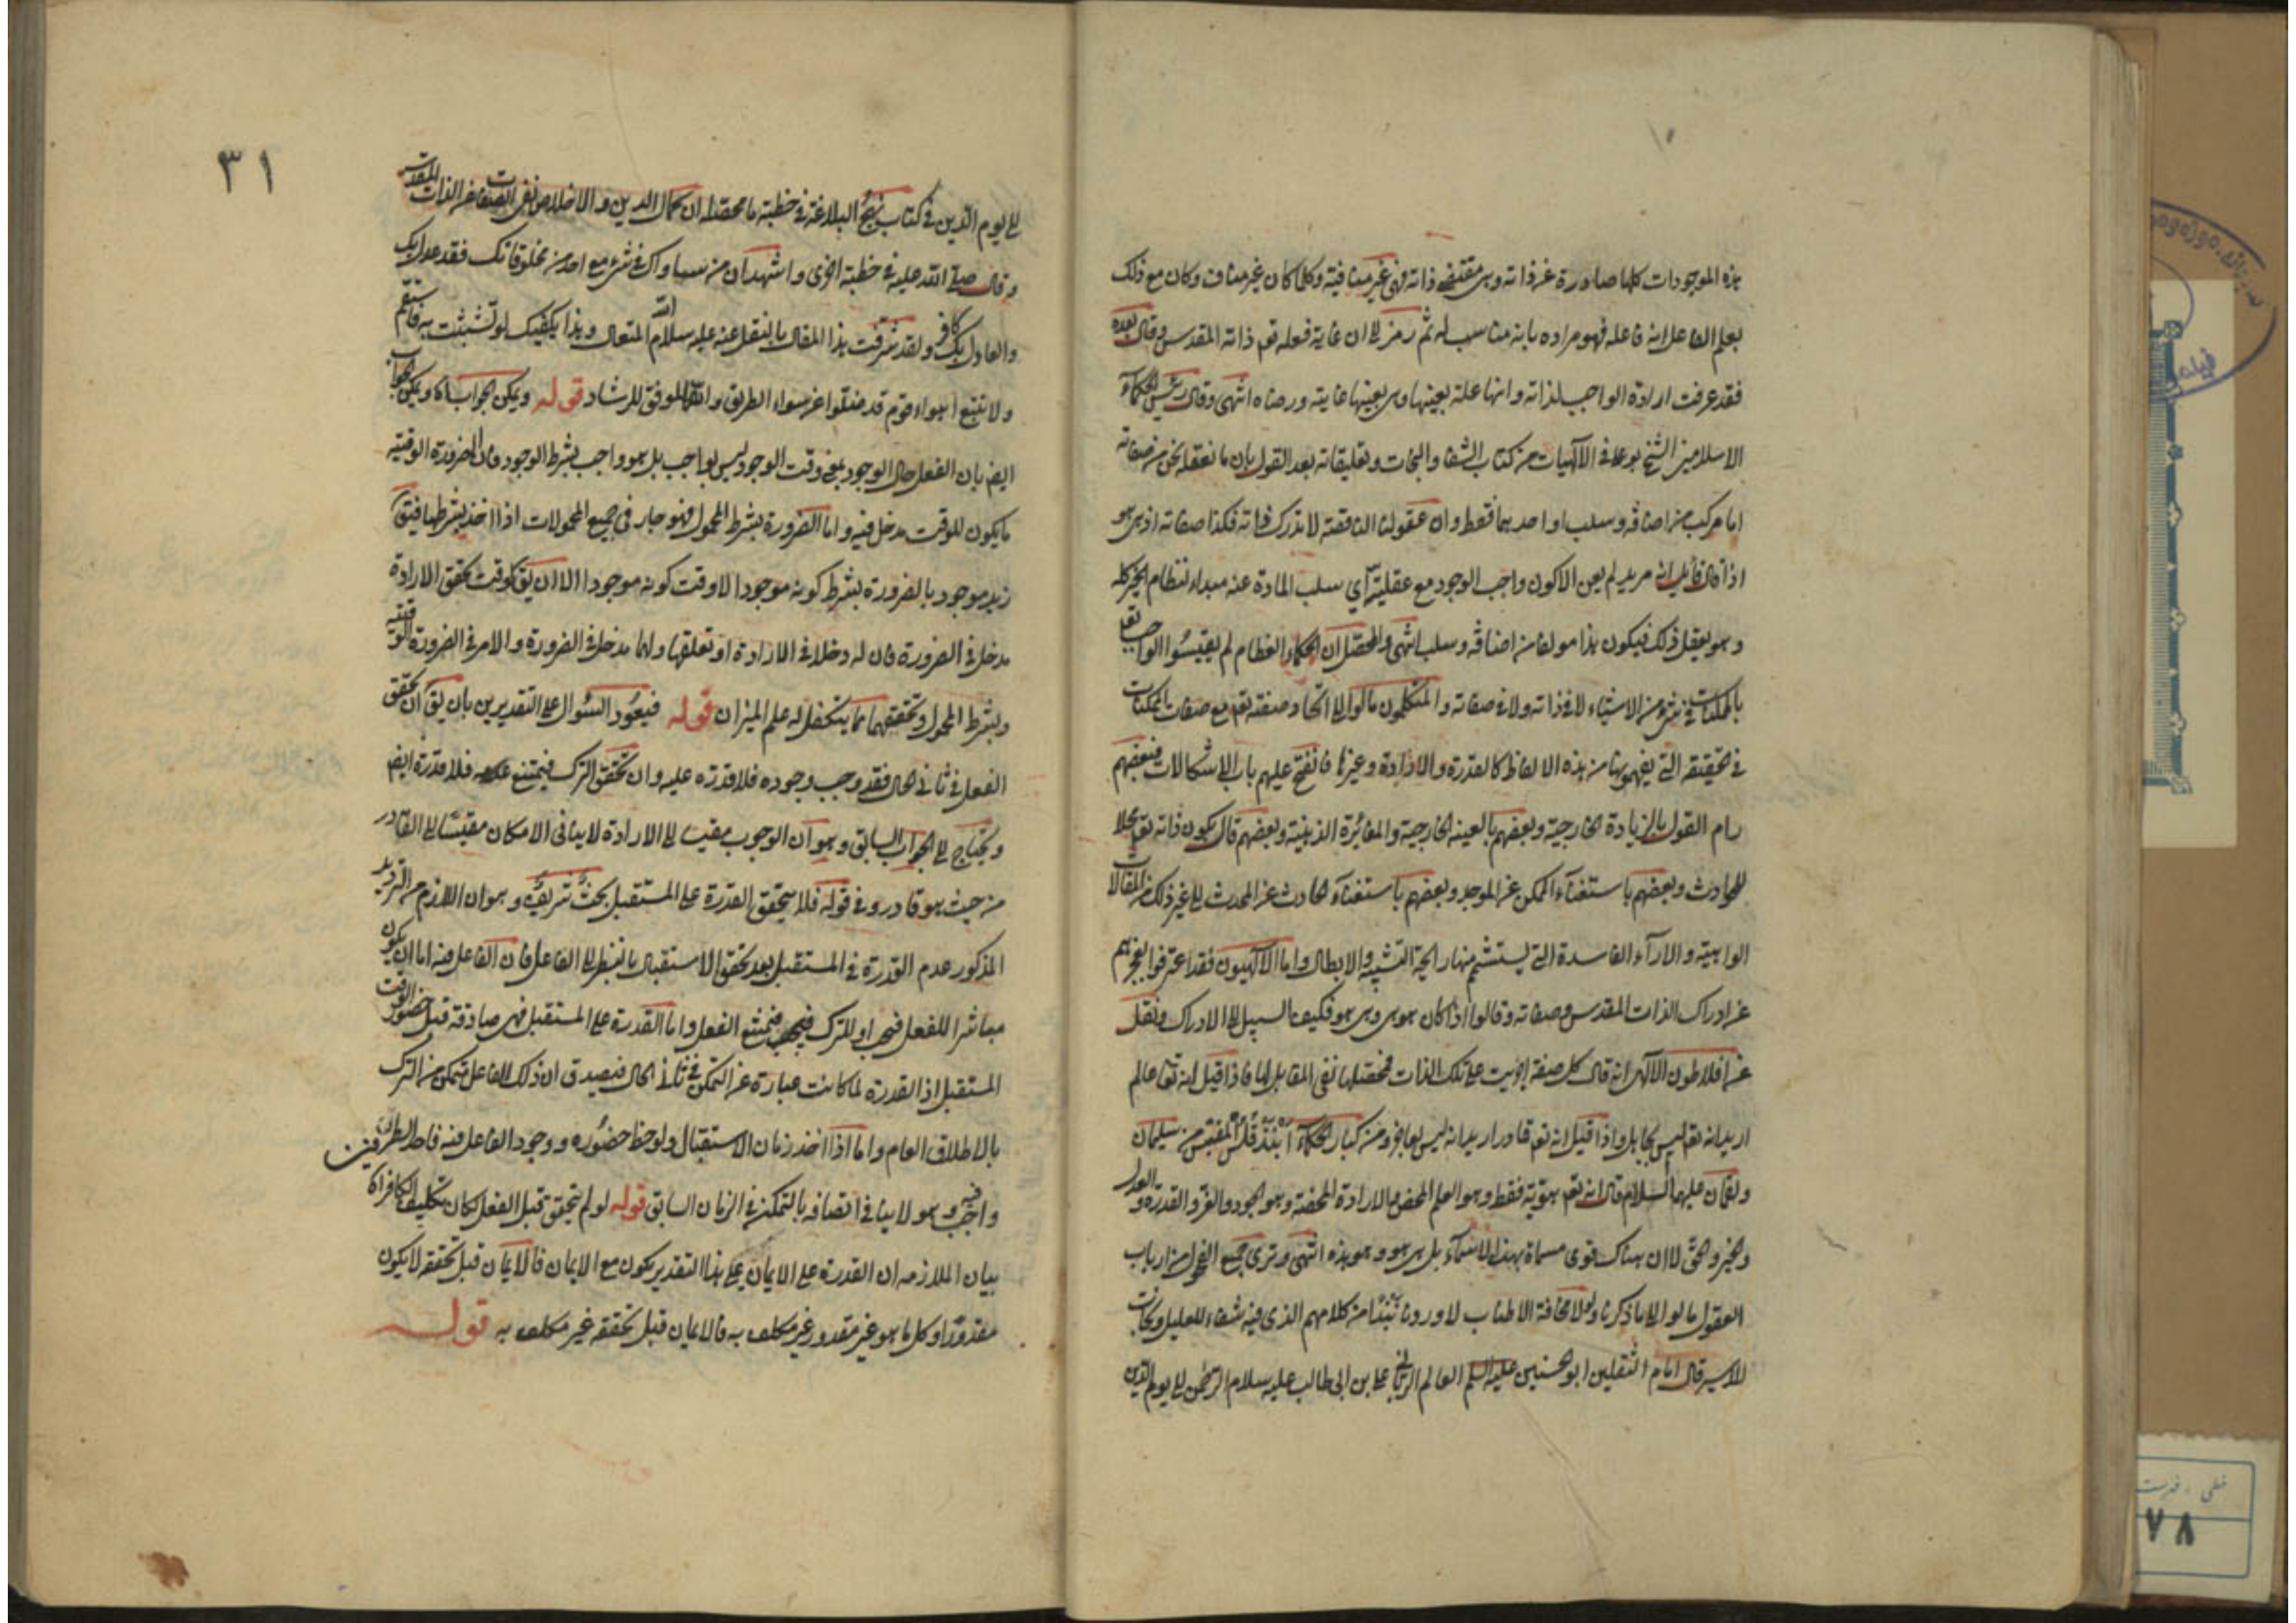 هذه الموجودات كلها صادرة عن ذاته وهي مقتضى ذاته فهي غير منافية وكلما كان غير مناف وكان مع ذلك
يعلم الفاعل انه فاعله فهو مراده بانه مناسب له ثم رمز الى ان غاية فعله تع ذاته المقدس وقال بعده
فقد عرفت ارادة الواجب لذاته وانها علة بعينها وهي بعينها غايته ورضاه انتهى وقال رئيس الحكماء
الاسلاميين الشيخ بوعلى في الآلهيات من كتاب الشفا والنجات وتعليقاته بعد القول بان ما نعقله نحن من صفاته
اما مركب من اضافة وسلب او احدهما فقط وان عقولنا الناقصة لا تدرك ذاته فكذا صفاته اذ هي هو
اذا قال قائل انه مريد لم يعن الا كون واجب الوجود مع عقليته اي سلب المادة عنه مبداء لنظام الخير كله
وهو يعقل ذلك فيكون هذا مولفا من اضافة وسلب انتهى والمحصّل ان الحكماء العظام لم يقيسوا الواجب تع
بالممكنات في شئ من الاشياء لا في ذاته ولا في صفاته والمتكلمون مالوا الى اتحاد صفته تع مع صفات الممكنات
في الحقيقة التي يفهمونها من هذه الالفاظ كالقدرة والارادة وغيرها فانفتح عليهم باب الاشكالات فبعضهم
رام القول بالزيادة الخارجية وبعضهم بالعينية الخارجية والمغائرة الذهنية وبعضهم قال بكون ذاته تع محلا
للحوادث وبعضهم باستغناء الممكن عن الموجد وبعضهم باستغناء الحادث عن المحدث الى غير ذلك من المقالات
الواهية والآرآء الفاسدة التي يستشم منها رايحة التشبيه والابطال واما الآلهيون فقد اعترفوا بعجزهم
عن ادراك الذات المقدس وصفاته وقالوا اذا كان هو هي وهي هو فكيف السبيل الى الادراك ونقل
عن افلاطون الآلهي انه قال كل صفة اثبتت على تلك الذات فمحصلها نفي المقابل لها فاذا قيل انه تع عالم
اريد انه تع ليس بجاهل واذا قيل انه تع قادر اريد انه ليس بعاجز ومن كبار الحكماء انبذقلس المقتبس من سليمان
ولقمان عليهما السلام قال انه تع هويته فقط وهو العلم المحض والارادة المحضة وهو الجود والعز والقدرة والعدل
والخير والحق لا ان هناك قوى مسماة بهذه الاسماء بل هي هو وهو هذه انتهى وترى جميع الفحول من ارباب
العقول مالوا الى ما ذكرنا ولولا مخافة الاطناب لاوردنا نبذا من كلامهم الذي فيه شفاء للعليل ونجات
للاسير قال امام الثقلين ابو الحسنين عليه السلم العالم الرباني على بن ابى طالب عليه سلام الرحمن الى يوم الدين
٣١
الى يوم الدين في كتاب نهج البلاغة في خطبة ما محصله ان كمال الدين والاخلاص نفى الصفات عن الذات المقدس
وقال صلى الله عليه في خطبة اخرى واشهد ان من ساواك في شئ مع احد من مخلوقاتك فقد عدل بك
والعادل بك كافر ولقد شرفت هذا المقال بالنقل عنه عليه سلام الله المتعال وهذا يكفيك لو تشبثت به فاستقم
ولا تتبع اهواء قوم قد ضلوا عن سواء الطريق والله الموفق للرشاد قوله ويمكن الجواب آه ويمكن الجواب
ايض بان الفعل حال الوجود بمعنى وقت الوجود ليس بواجب بل هو واجب بشرط الوجود فان الضرورة الوقتية
ما يكون للوقت مدخل فيه واما الضرورة بشرط المحمول فهو جار في جميع المحمولات اذا اخذ بشرطها فيق
زيد موجود بالضرورة بشرط كونه موجودا لا وقت كونه موجودا الا ان يق لوقت تحقق الارادة
مدخل في الضرورة فان له دخلا في الارادة او تعلقها ولها مدخل في الضرورة والامر في الضرورة الوقتيه
وبشرط المحمول وتحقيقهما مما يتكفل له علم الميزان قوله فيعود السئوال على التقديرين بان يق ان تحقق
الفعل في ثاني الحال فقد وجب وجوده فلا قدرة عليه وان تحقق الترك فيمتنع عدمه فلا قدرة ايض
ويحتاج الى الجواب السابق وهو ان الوجوب مقيسا الى الارادة لا ينافى الامكان مقيسا الى القادر
من حيث هو قادر وفي قوله فلا يتحقق القدرة على المستقبل بحث شريف وهو ان اللازم من الترديد
المذكور عدم القدرة في المستقبل بعد تحقق الاستقبال بالنظر الى الفاعل فان الفاعل فيه اما ان يكون
مباشرا للفعل فيجب او للترك فيمتنع الفعل واما القدرة على المستقبل فهي صادقة قبل حضور الوقت
المستقبل اذ القدرة لما كانت عبارة عن التمكن في ثاني الحال فيصدق ان ذلك الفاعل متمكن من الترك
بالاطلاق العام واما اذا اخذ زمان الاستقبال ولوحظ حضوره ووجود الفاعل فيه فاحد الطرفين
واجب فيه وهو لا ينافي اتصافه بالتمكن في الزمان السابق قوله لو لم يتحقق قبل الفعل لكان تكليف الكافر آه
بيان الملازمه ان القدرة على الايمان على هذا التقدير يكون مع الايمان فالايمان قبل تحققه لا يكون
مقدورا وكل ما هو غير مقدور غير مكلف به فالايمان قبل تحققه غير مكلف به قوله
خطى . فهرست
٧٨